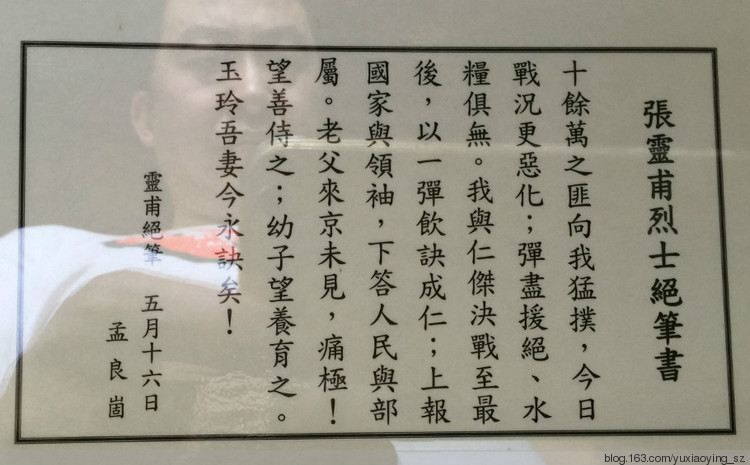 張靈甫烈士絕筆書
十餘萬之匪向我猛撲，今日
戰況更惡化；彈盡援絕、水
糧俱無。我與仁傑決戰至最
後，以一彈飲訣成仁；上報
國家與領袖，下答人民與部
屬。老父來京未見，痛極！
望善侍之；幼子望養育之。
玉玲吾妻今永訣矣！
靈甫絕筆 五月十六日
孟良崮
blog.163.com/yuxiaoying_sz